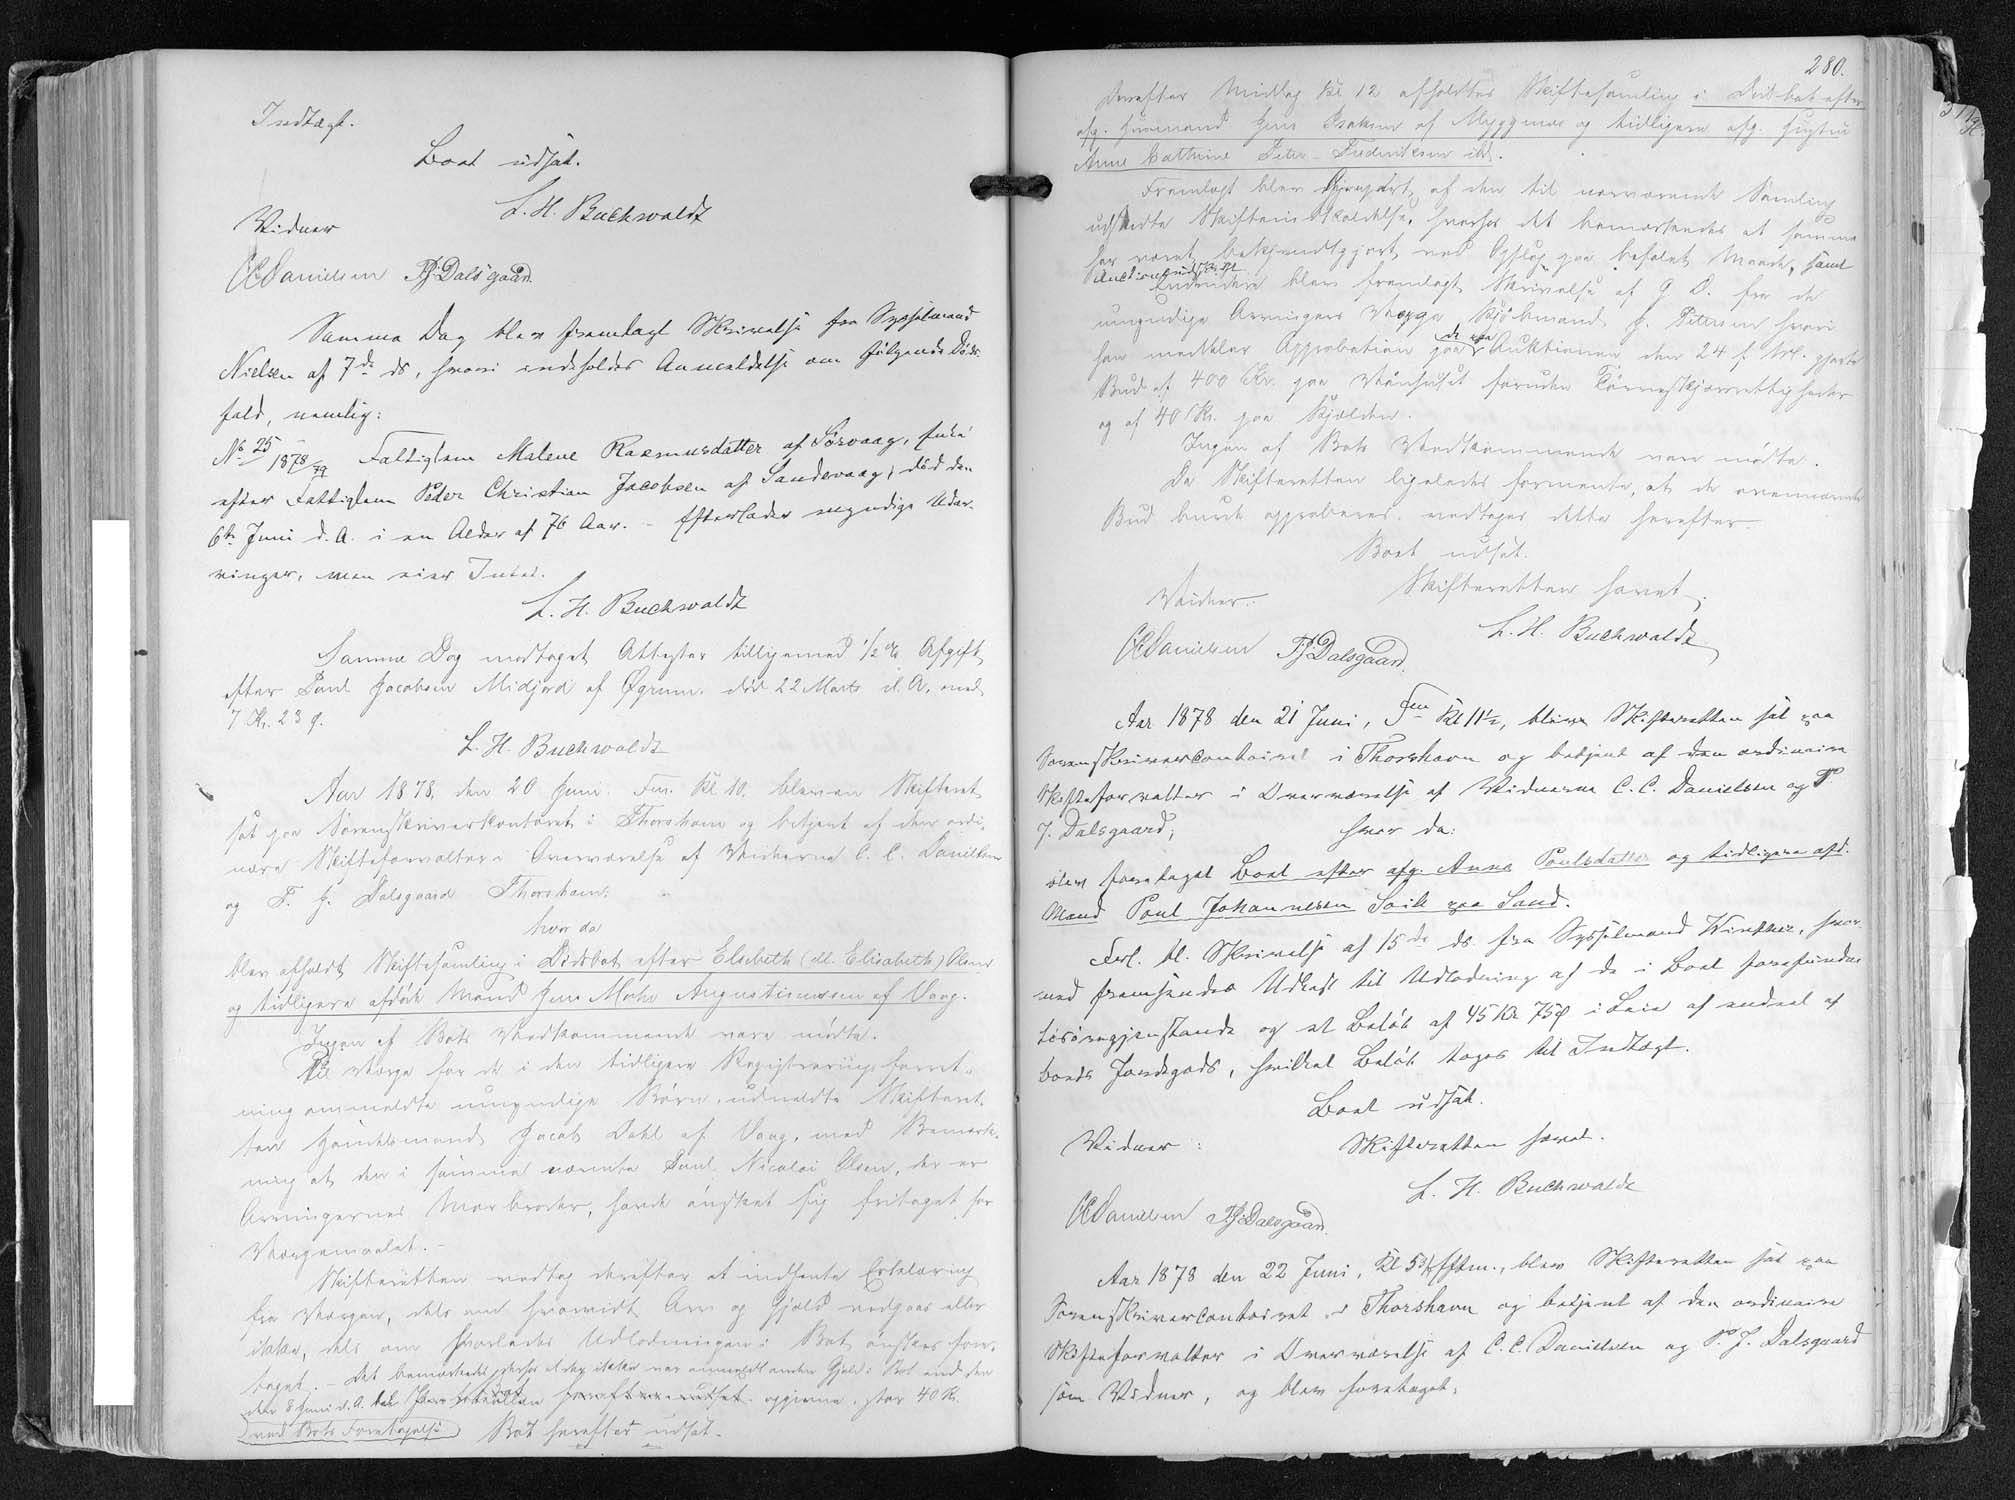 Indtægt.
Boet udsat.
L. H. Buchwaldt
Vidner
CCDanielsen PJDalsgaard
Samme Dag blev fremlagt Skrivelse fra Sysselmand
Nielsen af 7de ds, hvori indeholdes Anmeldelse om følgende Døds-
fald, nemlig:
No 25 1878/79 Fattiglem Malene Rasmusdatter af Sørvaag, Enke
efter Fattiglem Peder Christian Jacobsen af Sandevaag, død den
6te Juni d. A. i en Alder af 76 Aar. - Efterlader myndige Udar-
vinger, men eier Intet.
L. H. Buchwaldt
Samme Dag modtaget Attester tilligemed 1/2 % Afgift
efter Poul Jacobsen Midjord af Øgrum. død 22 Marts d. A. med
7 Kr. 23 Ø.
L. H. Buchwaldt
Aar 1878, den 20 Juni. Fm. Kl 10. blev en Skifteret
sat paa Sorenskriverkontoret i Thorshavn og betjent af den ordi-
nære Skifteforvalter i Overværelse af Vidnerne C. C. Danielsen
og P. J. Dalsgaard Thorshavn.
hvor da
blev afholdt Skiftesamling i Dødsbot efter Elsebeth (ell. Elisabeth) Olsen
og tidligere afdøde Mand Jens Mohr Augustinussen af Vaag.
Ingen af Bots Vedkommende vare mødte.
Til Værge for de i den tidligere Registreringsforret-
ning ommeldte umyndige Børn, udmeldte Skifteret-
ten Handelsmand Jacob Dahl af Vaag, med Bemærk-
ning at den i samme nævnte Poul Nicolai Olsen, der er
Arvingernes Morbroder, havde ønsket sig fritaget for
Værgemaalet. -
Skifteretten vedtog derefter at indhente Erklæring
fra Værgen, dels om hvorvidt Arv og Gjæld vedgaas eller
ikke, dels om hvorledes Udlodningen i Bot ønskes fore-
taget. - Det bemærkedes derhos at der ikke var anmeldt anden Gjæld i Bot end den
den 8 Juni d. A. opgivne, stor 40 Kr.
ved Bots Foretagelse Bot herefter udsat.
280.
Derefter Middag Kl 12 afholdtes Skiftesamling i Dødsbot efter
afg. Huusmand Jens Isaksen af Myggenæs og tidligere afg. Hustru
Anne Cathrine Peter-Frederiksen ibd.
Fremlagt blev Gjenpart af den til nærværende Samling
udstedte Skifteindkaldelse, hvorhos det bemærkedes at samme
har været bekjendtgjort ved Opslag paa befalet Maade, samt
Auctionsudskrift.
Endvidere blev fremlagt Skrivelse af G. D. fra de
umyndige Arvingers Værge Kjøbmand J. Petersen hvori
han meddeler Approbation paa de paa Auktionen den 24 f. M. gjorte
Bud af 400 Kr. paa Vaanhuset foruden Tørveskjærrettigheder
og af 40 Kr. paa Kjælden.
Ingen af Bots Vedkommende vare mødte.
Da Skifteretten ligeledes formente, at de ovennævnte
Bud burde approberes, vedtoges dette herefter.
Boet udsat.
Skifteretten hævet.
Vidner.
L. H. Buchwaldt
CCDanielsen PJDalsgaard.
Aar 1878 den 21 Juni, Fm Kl 11½, blev Skifteretten sat paa
Sorenskrivercontoiret i Thorshavn og betjent af den ordinaire
Skifteforvalter i Overværelse af Vidnerne C. C. Danielsen og P.
J. Dalsgaard;
hvor da:
blev foretaget Boet efter afg. Anna Poulsdatter og tidligere afd.
Mand Poul Johannesen Saik paa Sand.
Frl. bl. Skrivelse af 15de ds. fra Sysselmand Winther, hvor-
med fremsendes Udkast til Udlodning af de i Boet forefundne
Løsøregjenstande og et Beløb af 45 Kr 75 Ø i Leie af endeel af
Boets Jordegods, hvilket Beløb toges til Indtægt.
Boet udsat.
Skifteretten hævet.
Vidner:
L. H. Buchwaldt
CCDanielsen PJDalsgaard.
Aar 1878 den 22 Juni, Kl 5¾ Eftm., blev Skifteretten sat paa
Sorenskrivercontoiret i Thorshavn og betjent af den ordinaire
Skifteforvalter i Overværelse af C. C. Danielsen og P. J. Dalsgaard
som Vidner, og blev foretaget: